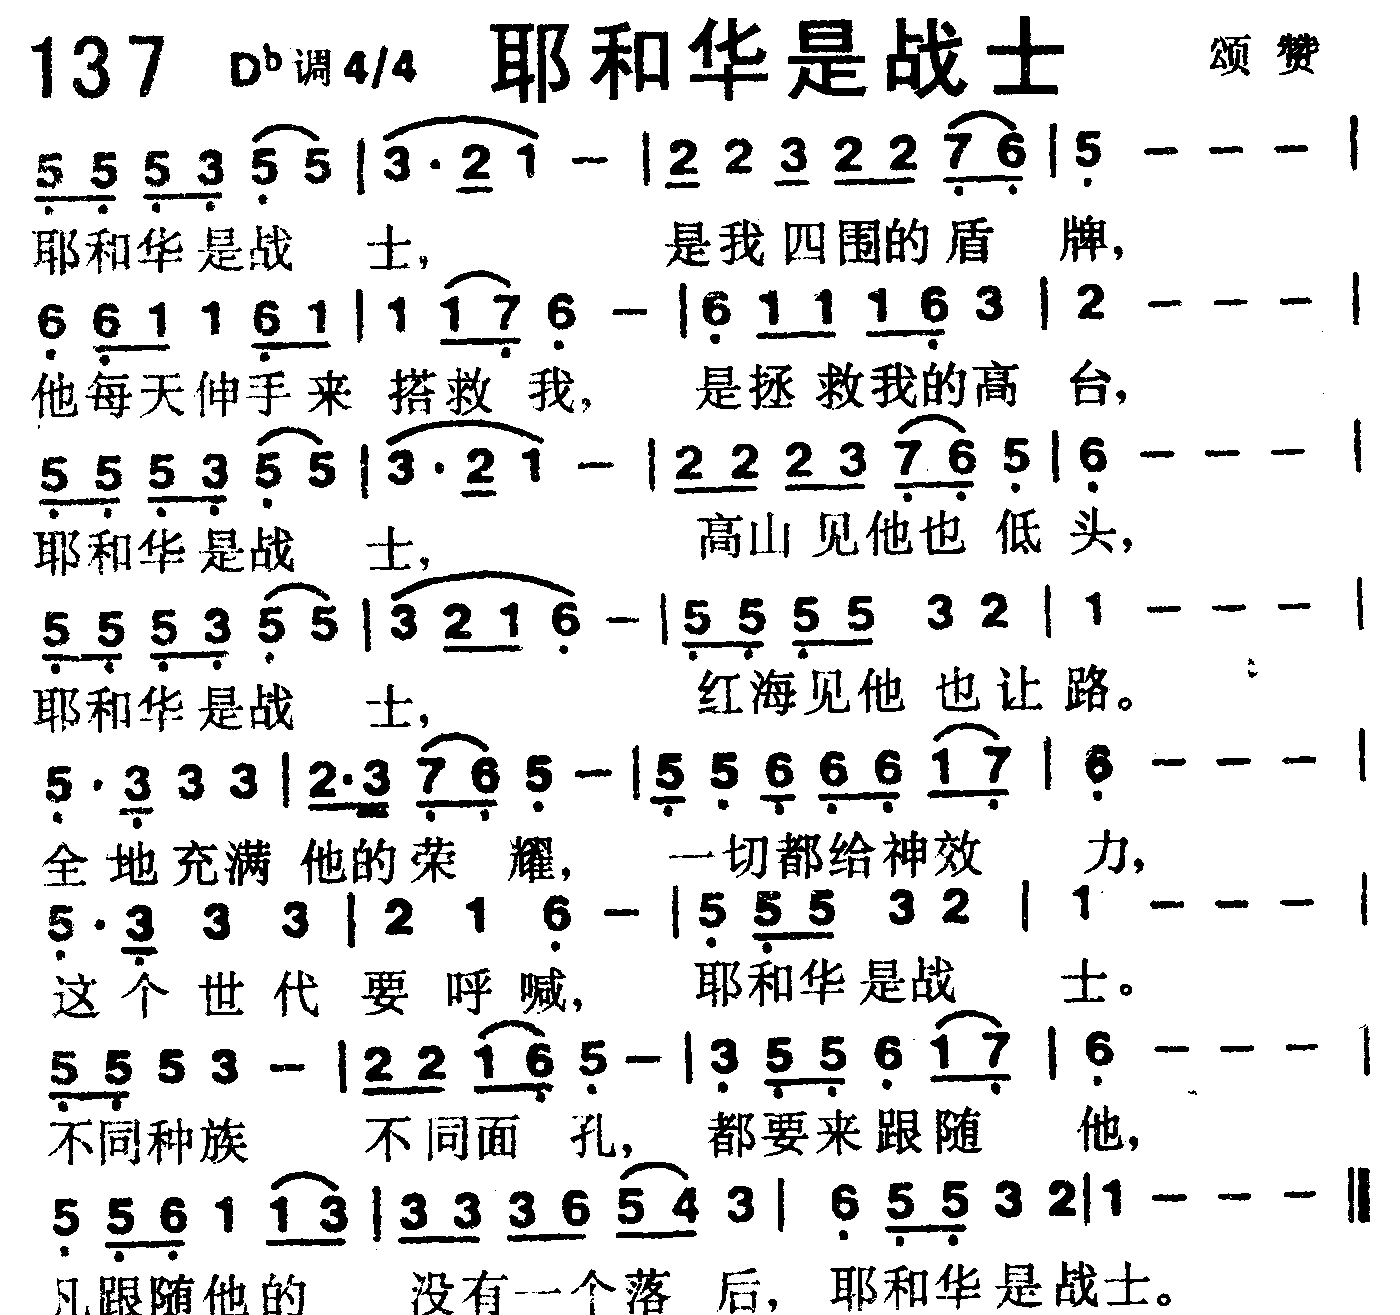 137 Dᵇ调4/4 耶和华是战士 颂赞
5 5 5 3 5 5 | 3 · 2 1 － | 2 2 3 2 2 7 6 | 5 － － － |
耶和华是战 士， 是我四围的盾 牌，
6 6 1 1 6 1 | 1 1 7 6 － | 6 1 1 1 6 3 | 2 － － － |
他每天伸手来 搭救 我， 是拯救我的高 台，
5 5 5 3 5 5 | 3 · 2 1 － | 2 2 2 3 7 6 5 | 6 － － － |
耶和华是战 士， 高山见他也低头，
5 5 5 3 5 5 | 3 2 1 6 － | 5 5 5 5 3 2 | 1 － － － |
耶和华是战 士， 红海见他也让路。
5 · 3 3 3 | 2 · 3 7 6 5 － | 5 5 6 6 6 1 7 | 6 － － － |
全地充满 他的荣 耀， 一切都给神效 力，
5 · 3 3 3 | 2 1 6 － | 5 5 5 3 2 | 1 － － － |
这个世代要呼喊， 耶和华是战 士。
5 5 5 3 － | 2 2 1 6 5 － | 3 5 5 6 1 7 | 6 － － － |
不同种族 不同面 孔， 都要来跟随 他，
5 5 6 1 1 3 | 3 3 3 6 5 4 3 | 6 5 5 3 2 | 1 － － － ‖
凡跟随他的 没有一个落 后， 耶和华是战士。